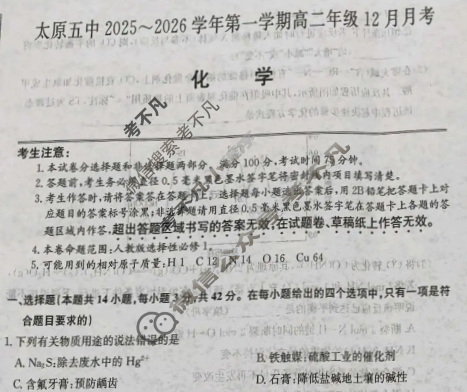 太原五中 2025～2026 学年第一学期高二年级 12 月月考
化 学
考生注意：
1. 本试卷分选择题和非选择题两部分。满分 100 分，考试时间 75 分钟。
2. 答题前，考生务必用直径 0.5 毫米黑色墨水签字笔将密封线内项目填写清楚。
3. 考生作答时，请将答案答在答题卡上。选择题每小题选出答案后，用 2B 铅笔把答题卡上对
应题目的答案标号涂黑；非选择题请用直径 0.5 毫米黑色墨水签字笔在答题卡上各题的答
题区域内作答，超出答题区域书写的答案无效，在试题卷、草稿纸上作答无效。
4. 本卷命题范围：人教版选择性必修 1。
5. 可能用到的相对原子质量：H 1 C 12 N 14 O 16 Cu 64
一、选择题（本题共 14 小题，每小题 3 分，共 42 分。在每小题给出的四个选项中，只有一项是符
合题目要求的）
1. 下列有关物质用途的说法错误的是
A. Na₂S：除去废水中的 Hg²⁺
B. 铁触媒：硫酸工业的催化剂
C. 含氟牙膏：预防龋齿
D. 石膏：降低盐碱地土壤的碱性
考不凡
微信搜索考不凡
微信公众号考不凡